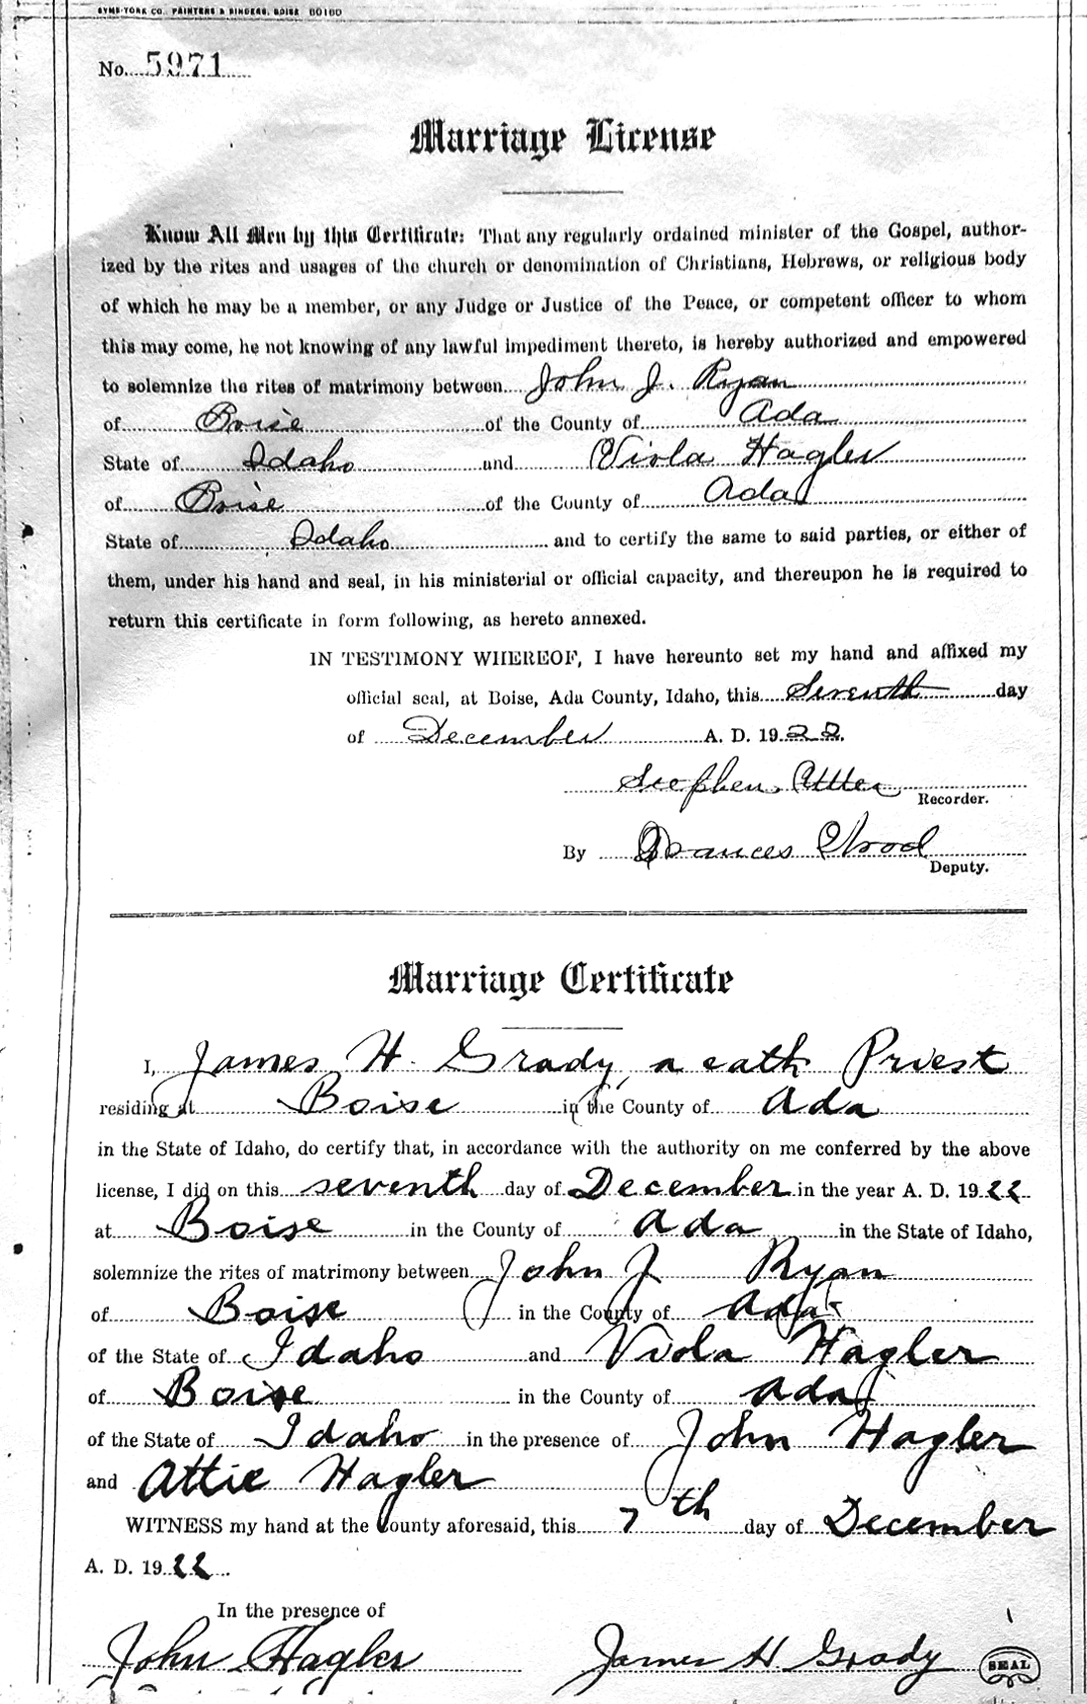 SYMS-YORK CO. PRINTERS & BINDERS, BOISE 60160
No. 5971
Marriage License
Know All Men by this Certificate: That any regularly ordained minister of the Gospel, author-
ized by the rites and usages of the church or denomination of Christians, Hebrews, or religious body
of which he may be a member, or any Judge or Justice of the Peace, or competent officer to whom
this may come, he not knowing of any lawful impediment thereto, is hereby authorized and empowered
to solemnize the rites of matrimony between John J. Ryan
of Boise of the County of Ada
State of Idaho and Viola Hagler
of Boise of the County of Ada
State of Idaho and to certify the same to said parties, or either of
them, under his hand and seal, in his ministerial or official capacity, and thereupon he is required to
return this certificate in form following, as hereto annexed.
IN TESTIMONY WHEREOF, I have hereunto set my hand and affixed my
official seal, at Boise, Ada County, Idaho, this Seventh day
of December A. D. 1922.
Stephen Utter
Recorder.
By Frances Wood
Deputy.
Marriage Certificate
I, James H. Grady, a cath Priest
residing at Boise in the County of Ada
in the State of Idaho, do certify that, in accordance with the authority on me conferred by the above
license, I did on this seventh day of December in the year A. D. 1922
at Boise in the County of Ada in the State of Idaho,
solemnize the rites of matrimony between John J Ryan
of Boise in the County of Ada
of the State of Idaho and Viola Hagler
of Boise in the County of Ada
of the State of Idaho in the presence of John Hagler
and Attie Hagler
WITNESS my hand at the County aforesaid, this 7th day of December
A. D. 1922.
In the presence of
John Hagler James H Grady SEAL